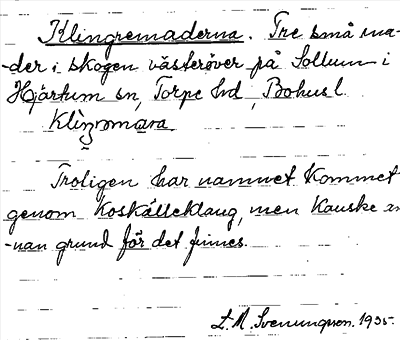 Klingremaderna. Tre små ma-
-der i skogen västeröver på Sollum i
Hjärtum sn, Torpe hd, Bohusl.
Klingmara
Troligen har namnet kommet
genom koskälleklang, men kanske an-
-nan grund för det finnes.
L. M. Svenungsson. 1935.